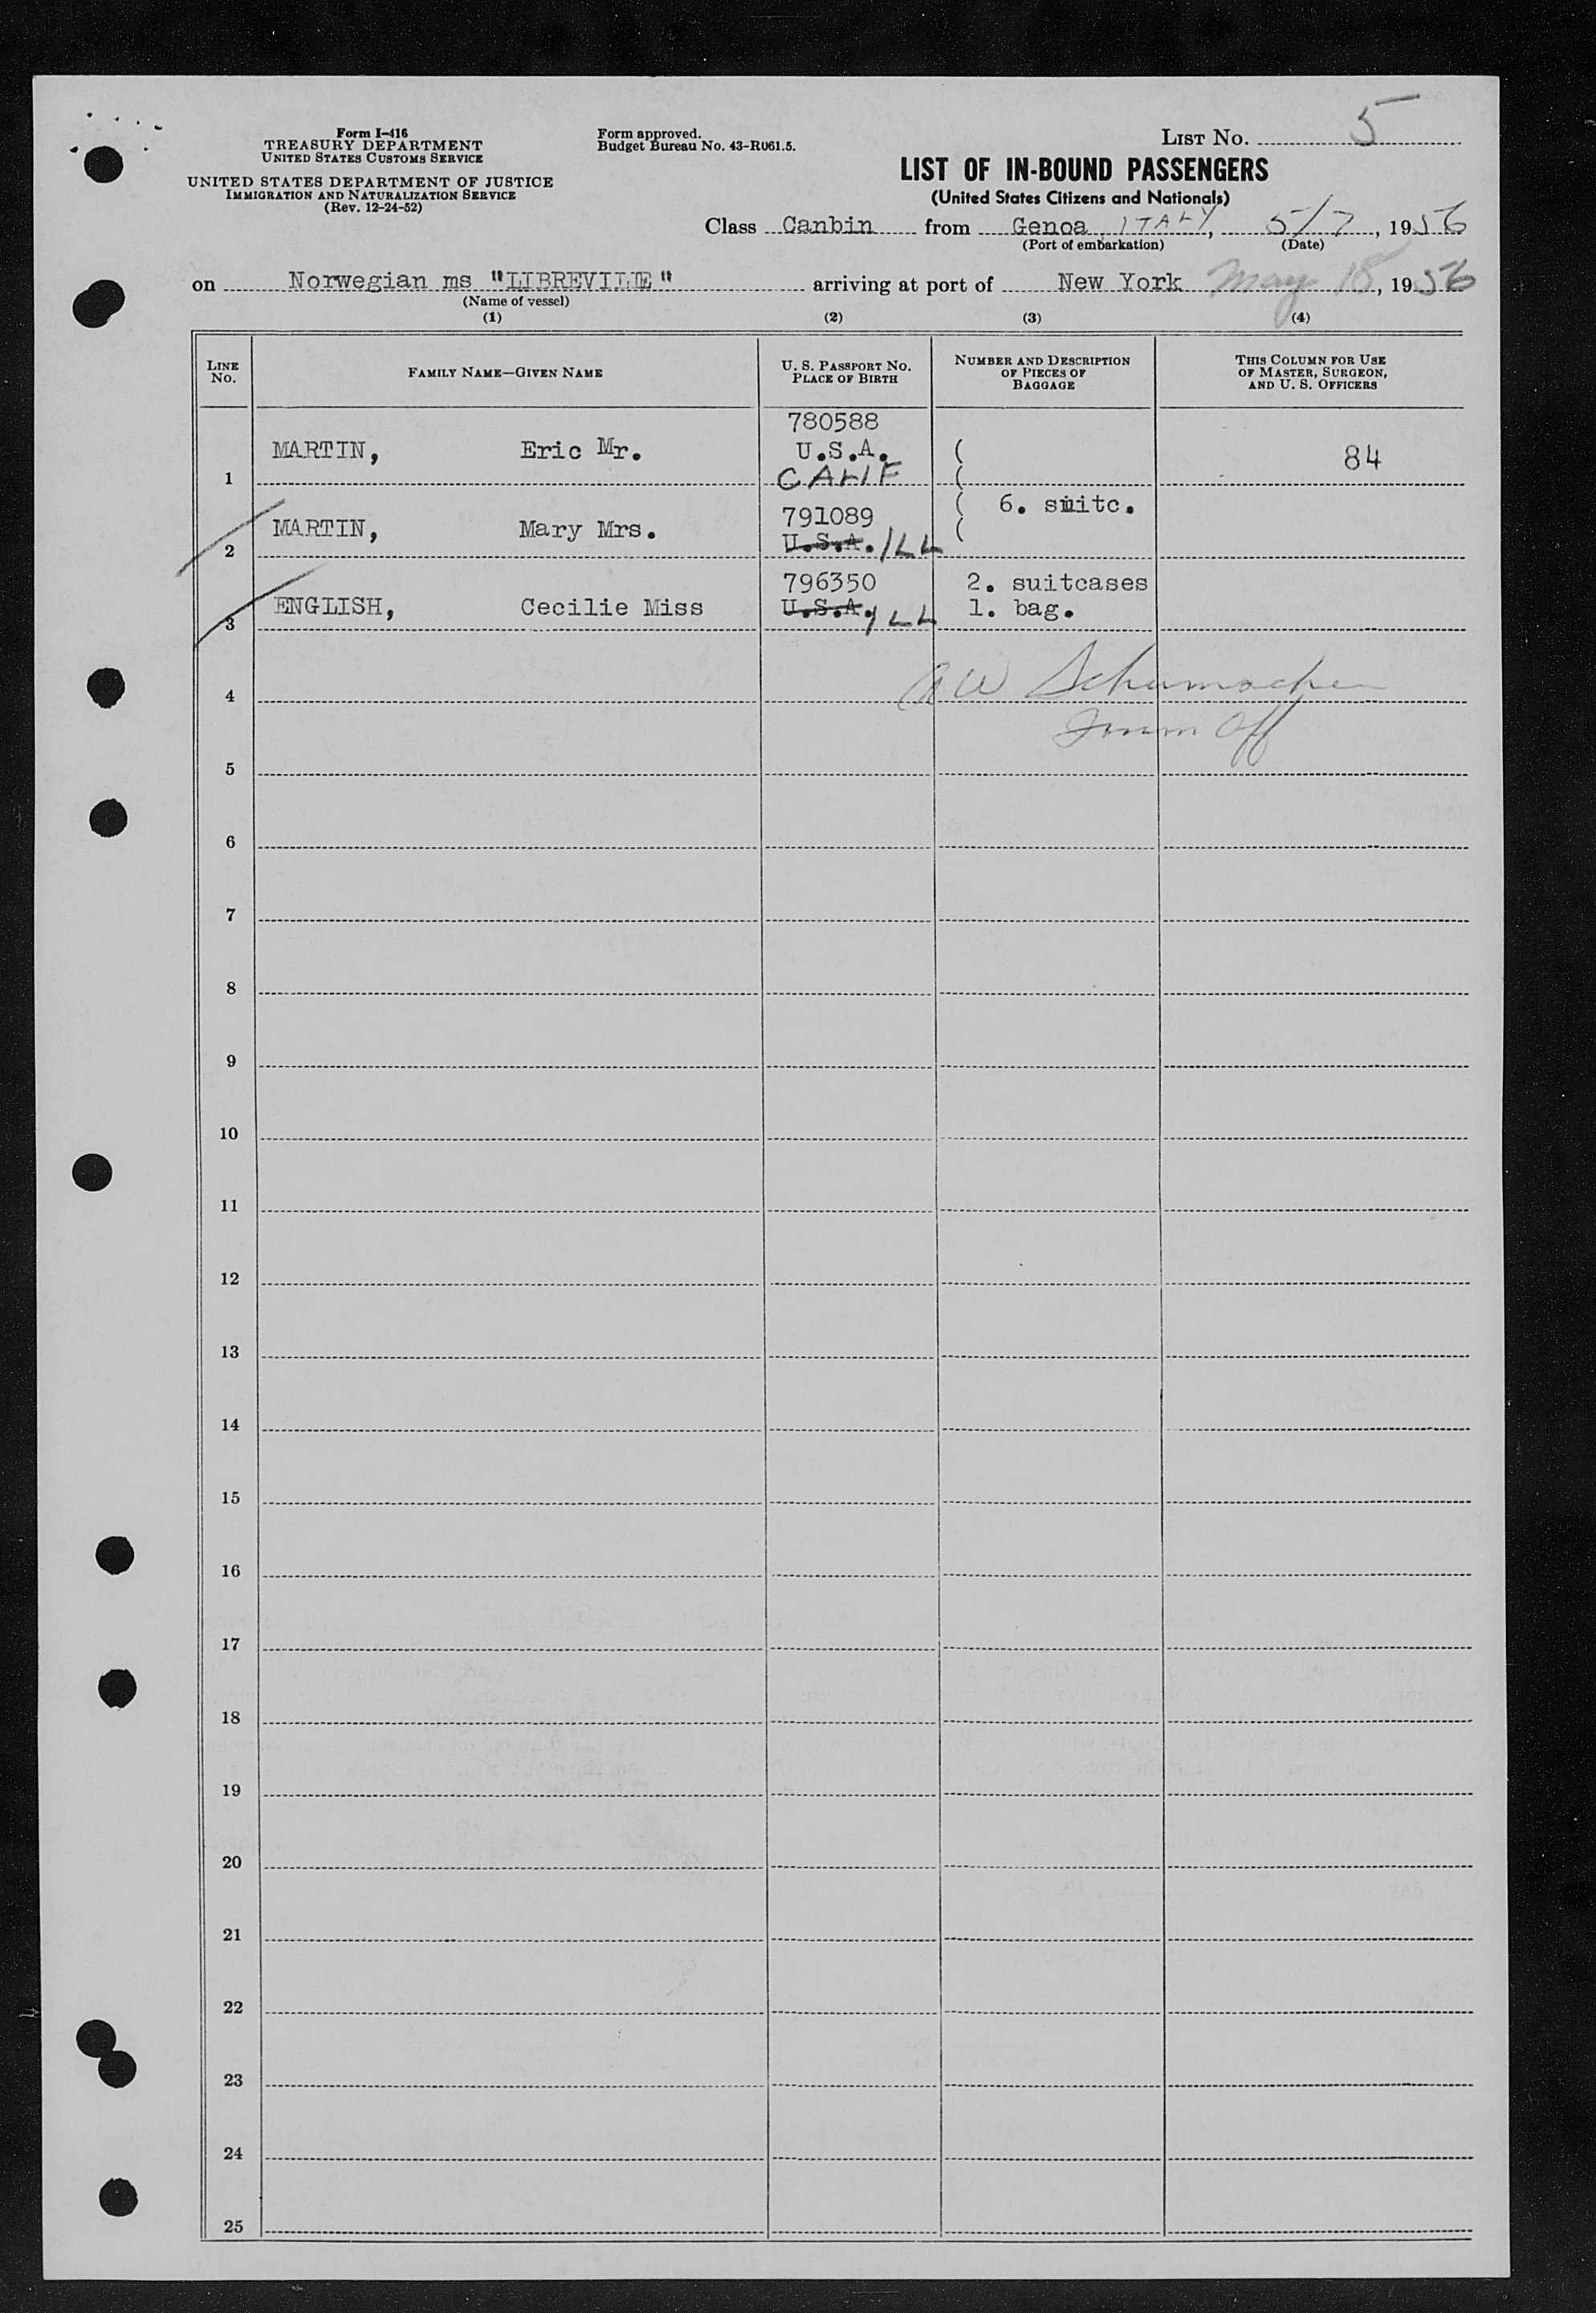 Form I-416
TREASURY DEPARTMENT
UNITED STATES CUSTOMS SERVICE
UNITED STATES DEPARTMENT OF JUSTICE
IMMIGRATION AND NATURALIZATION SERVICE
(Rev. 12-24-52)
Form approved.
Budget Bureau No. 43-R061.5.
LIST NO. 5
LIST OF IN-BOUND PASSENGERS
(United States Citizens and Nationals)
Class Canbin from Genoa, ITALY, 5/7, 1956
(Port of embarkation) (Date)
on Norwegian ms "LIBREVILLE" arriving at port of New York May 18, 1956
(Name of vessel)
(1) (2) (3) (4)
LINE NO.
FAMILY NAME—GIVEN NAME
U. S. PASSPORT NO.
PLACE OF BIRTH
NUMBER AND DESCRIPTION
OF PIECES OF
BAGGAGE
THIS COLUMN FOR USE
OF MASTER, SURGEON,
AND U. S. OFFICERS
780588
MARTIN, Eric Mr. U.S.A. ( 84
1 CALIF (
791089 ( 6. suitc.
MARTIN, Mary Mrs. (
2 U.S.A. ILL
796350 2. suitcases
ENGLISH, Cecilie Miss U.S.A. ILL 1. bag.
3
A W Schumacher
4
Imm Off
5
6
7
8
9
10
11
12
13
14
15
16
17
18
19
20
21
22
23
24
25